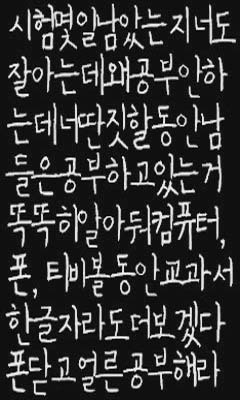 시험몇일남았는지너도
잘아는데왜공부안하
는데너딴짓할동안남
들은공부하고있는거
똑똑히알아둬컴퓨터,
폰, 티비볼동안교과서
한글자라도더보겠다
폰닫고얼른공부해라